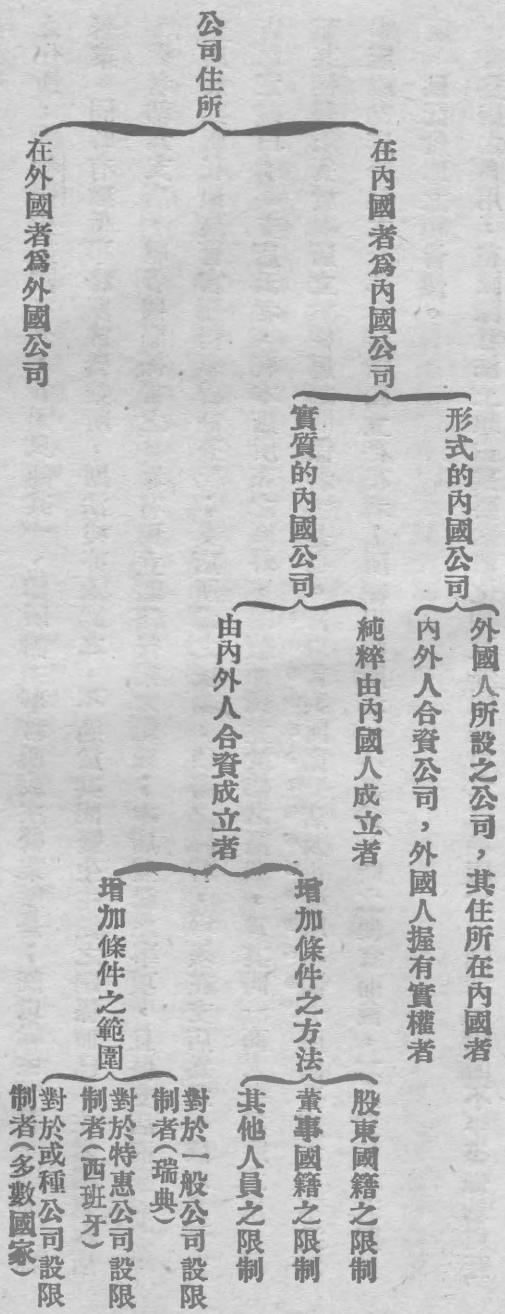 公司住所
在內國者爲內國公司
形式的內國公司
外國人所設之公司，其住所在內國者
內外人合資公司，外國人握有實權者
實質的內國公司
純粹由內國人成立者
由內外人合資成立者
增加條件之方法
股東國籍之限制
董事國籍之限制
其他人員之限制
增加條件之範圍
對於一般公司設限
制者(瑞典)
對於特惠公司設限
制者(西班牙)
對於或種公司設限
制者(多數國家)
在外國者爲外國公司